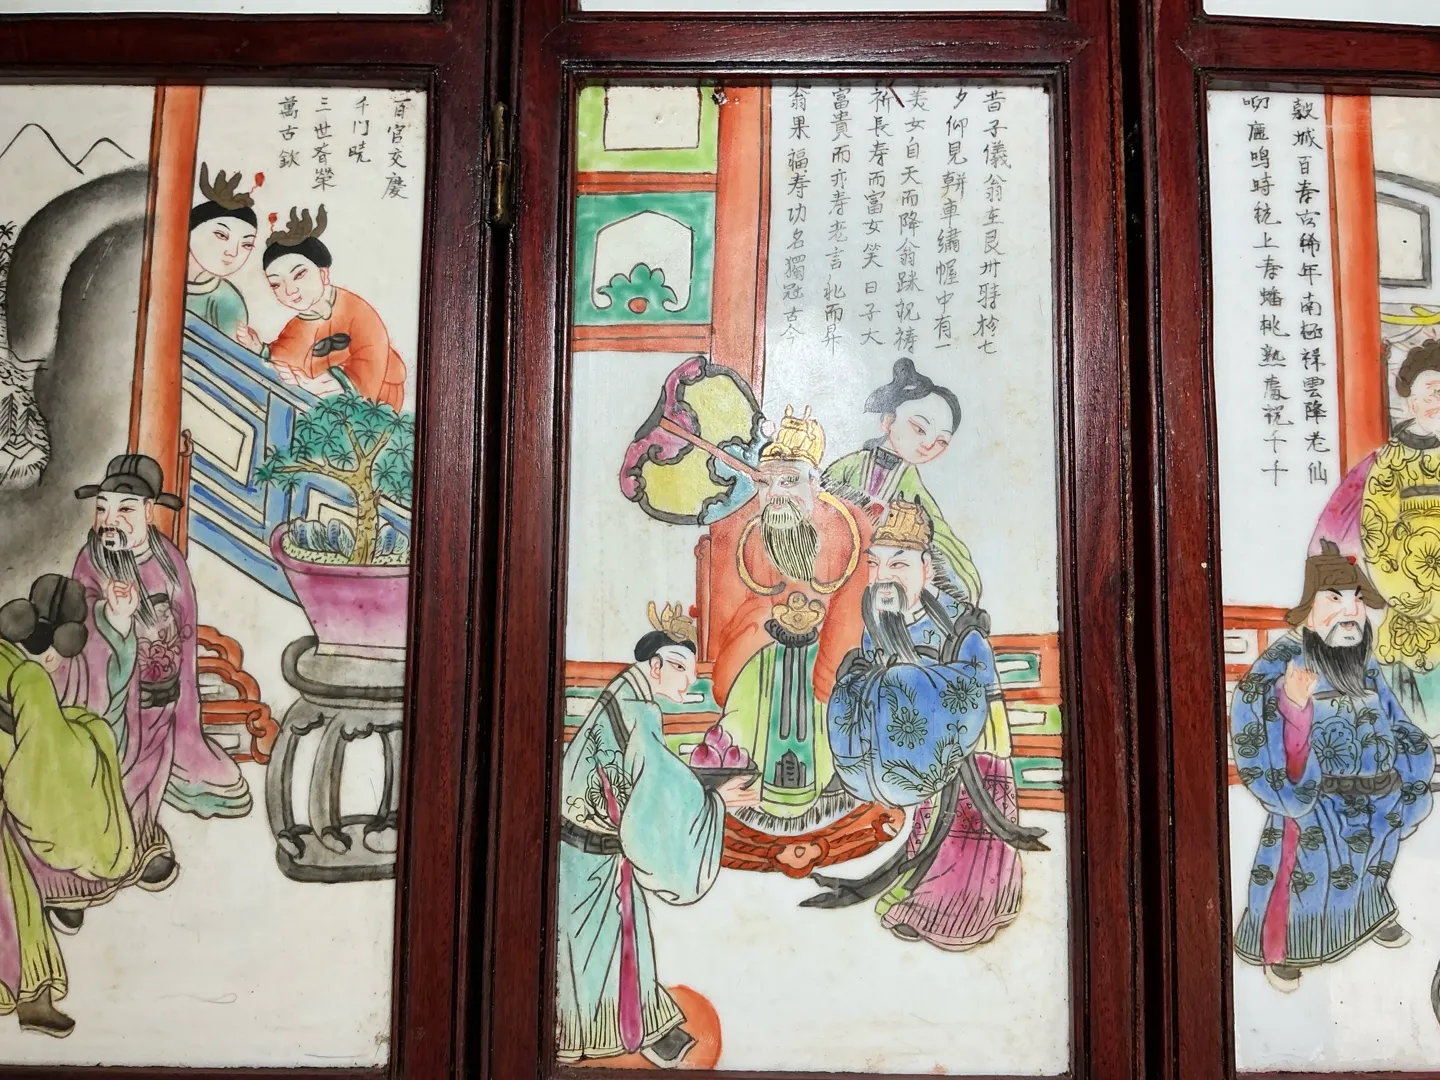 敦城百春古稀年南極祥雲降老仙
呦鹿鳴時秔上春蟠桃熟慶祝千千
昔子儀翁在艮卅驿柃七
夕仰見輧車繡幄中有一
美女自天而降翁跌祝禱
祈長寿而富女笑曰子大
富貴而亦寿老言礼而昇
翁果福寿功名獨冠古今
百官交慶
千门曉
三世眷榮
萬古欽